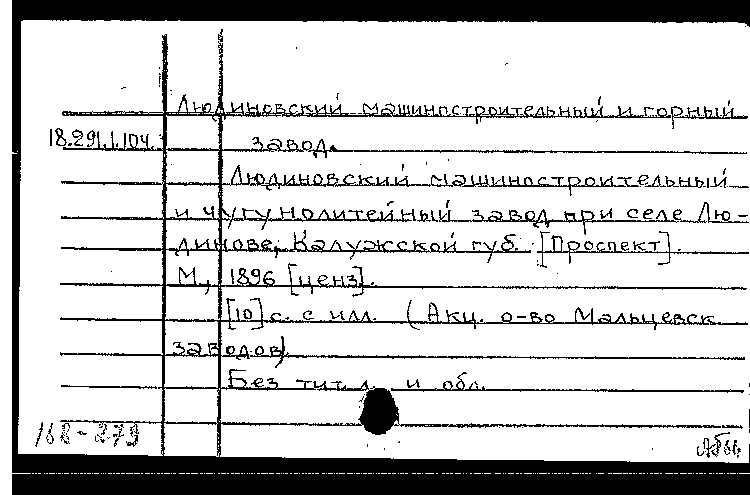 Людиновский машиностроительный и горный
18.291.1.104. завод.
Людиновский машиностроительный
и чугунолитейный завод при селе Лю-
динове, Калужской губ. [Проспект].
М., 1896 [ценз].
[10] с. с илл. (Акц. о-во Мальцевск.
заводов)
Без тит. л. и обл.
168-279